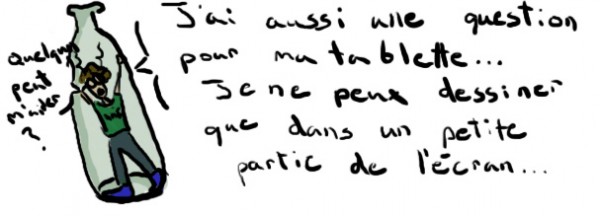 J'ai aussi une question
pour ma tablette...
Je ne peux dessiner
que dans un petite
partie de l'écran...
Quelqu'un
peut
m'aider
?